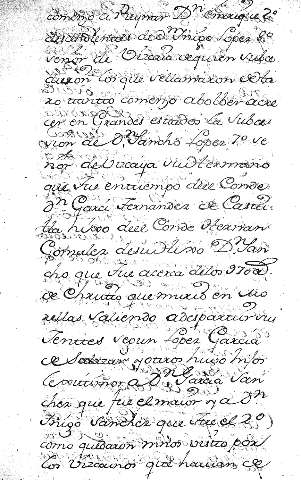 començo a Reynar Dn. Enrique 2º
descendientes de Dn Iñigo Lopez 6º
señor de Vizcaia de quien suce
dieron los que se llamaron de Ha
ro tanto començo a bolber a cre
cer en Grandes estados la Suce
sion de Dn Sancho Lopez 7º se
ñor de Vizcaya su Hermano
que fue en tiempo del Conde
Dn Garci Fernandez de Casti
lla hixo del Conde Hernan
Gonzalez de su Hixo Dn San
cho que fue acerca de los 970 a
de Christo que murio en Mo
rellas saliendo a despartir sus
Jentes segun Lopez Garcia
de Salazar y otros hubo hijos
lexitimos a Dn Garcia San
chez que fue el maior y a Dn
Iñigo Sanchez que fue el 2º
como quedaron niños visto por
los Vizcainos que havian de